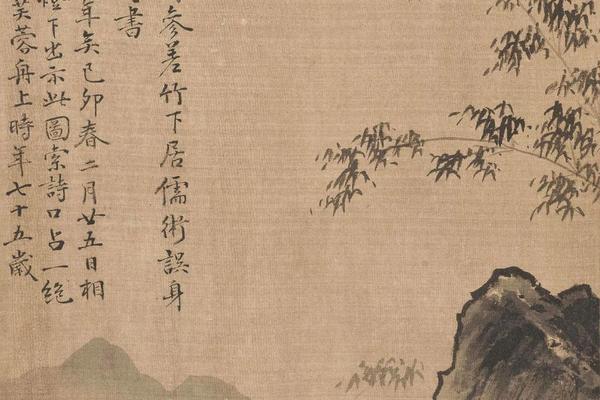 參差竹下居儒術誤身
書
年矣己卯春二月廿五日相
下出示此圖索詩口占一絕
芙蓉舟上時年七十五歲